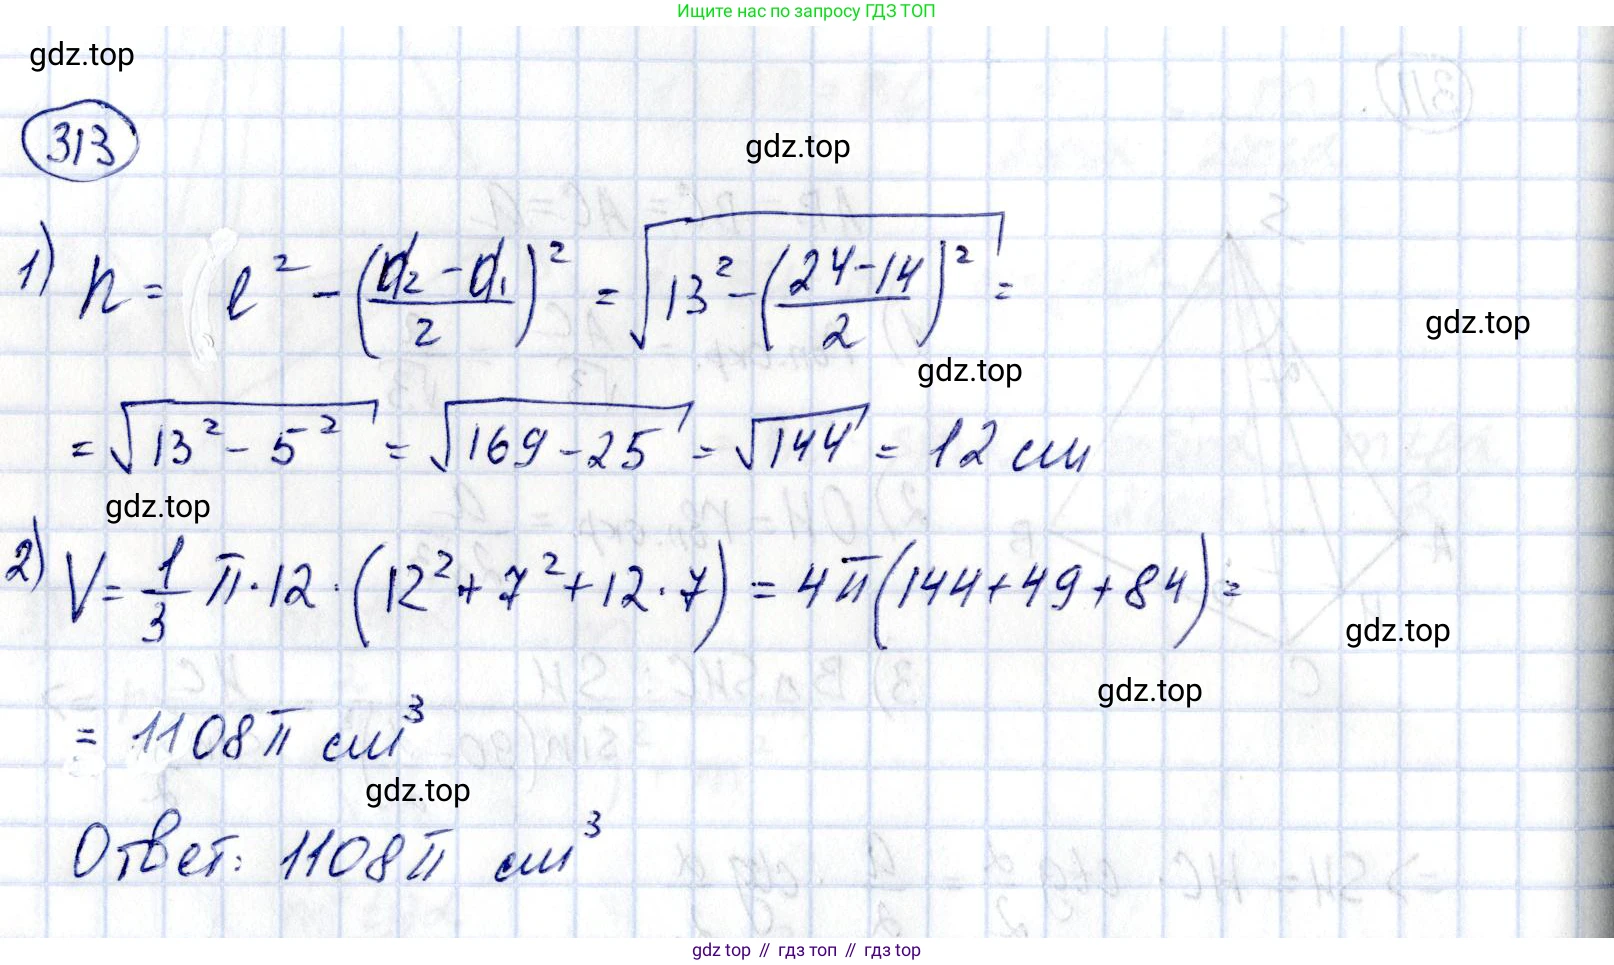 Ищите нас по запросу ГДЗ ТОП
gdz.top
313
gdz.top
1) h = l² - ((d₂ - d₁)/2)² = √(13² - ((24 - 14)/2)²) =
gdz.top
gdz.top
= √(13² - 5²) = √(169 - 25) = √144 = 12 см
gdz.top
2) V = 1/3 π · 12 · (12² + 7² + 12 · 7) = 4π(144 + 49 + 84) =
gdz.top
gdz.top
= 1108π см³
gdz.top
Ответ: 1108π см³
gdz top // гдз топ // гдз top